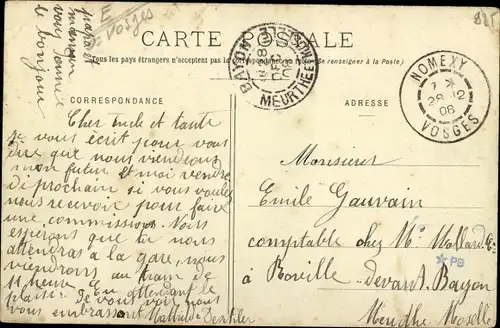 E
Vosges
papa et
maman
vous donne
le bonjour
CARTE POSTALE
Tous pays étrangers n'acceptent pas
(Se renseigner à la Poste)
BAYON
MEURTHE ET MOSELLE
NOMEXY
28 12
08
VOSGES
CORRESPONDANCE
ADRESSE
Cher oncle et tante
je vous écrit pour vous
dire que nous viendrons
mon futur et moi vendre
di prochain si vous voulez
nous recevoir pour faire
une commissions. Nous
esperons que tu nous
attendras a la gare, nous
viendrons au train de
11 heure. En attendant le
plaisir de vous voir nous
vous embrassont Mathilde
Monsieur
Emile Gauvain
comptable chez Mr
à Roville-devant-Bayon
Meurthe Moselle
PB